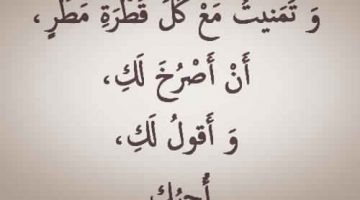 وَ تَمَنيتُ مَعْ كُلِّ قَطْرَةِ مَطَرٍ،
أَنْ أَصْرُخَ لَكِ،
وَ أَقولُ لَكِ،
أُحِبُكِ